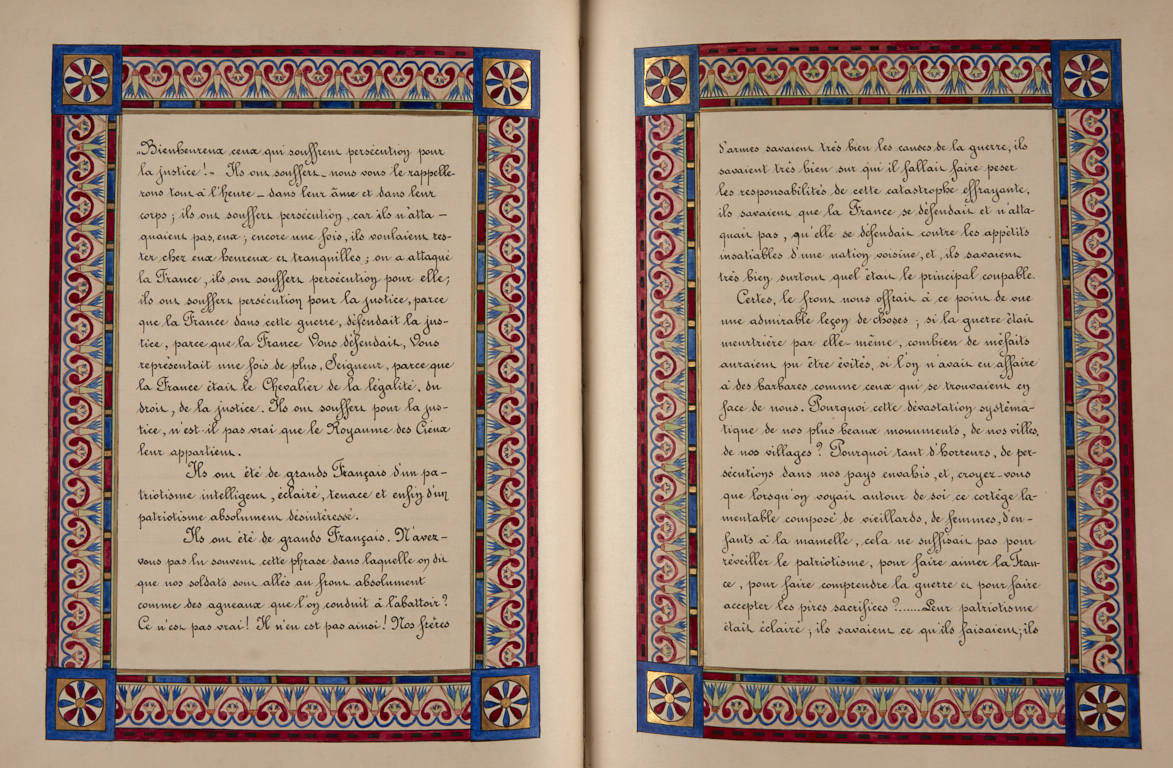 „Bienheureux ceux qui souffrent persécution pour
la justice!„ Ils ont souffert _ nous vous le rappelle-
rons tout à l'heure _ dans leur âme et dans leur
corps ; ils ont souffert persécution, car ils n'atta -
quaient pas, eux ; encore une fois, ils voulaient res-
ter chez eux heureux et tranquilles ; on a attaqué
la France, ils ont souffert persécution pour elle;
ils ont souffert persécution pour la justice, parce
que la France dans cette guerre, défendait la jus-
tice, parce que la France Vous défendait, Vous
représentait une fois de plus, Seigneur, parce que
la France était le Chevalier de la légalité, du
droit, de la justice. Ils ont souffert pour la jus-
tice, n'est-il pas vrai que le Royaume des Cieux
leur appartient.
Ils ont été de grands Français d'un pa-
triotisme intelligent, éclairé, tenace et enfin d'un
patriotisme absolument désintéressé.
Ils ont été de grands Français. N'avez-
vous pas lu souvent cette phrase dans laquelle on dit
que nos soldats sont allés au front absolument
comme des agneaux que l'on conduit à l'abattoir?
Ce n'est pas vrai! Il n'en est pas ainsi! Nos frères
d'armes savaient très bien les causes de la guerre, ils
savaient très bien sur qui il fallait faire peser
les responsabilités de cette catastrophe effrayante,
ils savaient que la France se défendait et n'atta-
quait pas, qu'elle se défendait contre les appétits
insatiables d'une nation voisine, et, ils savaient
très bien surtout quel était le principal coupable.
Certes, le front nous offrait à ce point de vue
une admirable leçon de choses ; si la guerre était
meurtrière par elle-même, combien de méfaits
auraient pu être évités, si l'on n'avait eu affaire
à des barbares comme ceux qui se trouvaient en
face de nous. Pourquoi cette dévastation systéma-
tique de nos plus beaux monuments, de nos villes,
de nos villages? Pourquoi tant d'horreurs, de per-
sécutions dans nos pays envahis, et, croyez-vous
que lorsqu'on voyait autour de soi ce cortège la-
mentable composé de vieillards, de femmes, d'en-
fants à la mamelle, cela ne suffisait pas pour
réveiller le patriotisme, pour faire aimer la Fran-
ce, pour faire comprendre la guerre et pour faire
accepter les pires sacrifices ?......Leur patriotisme
était éclairé ; ils savaient ce qu'ils faisaient; ils